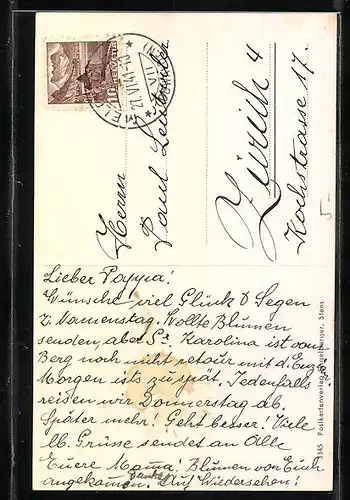 Lieber Pappa!
Wünsche viel Glück & Segen
z. Namenstag. Wollte Blumen
senden, aber Sr. Karolina ist vom
Berg noch nicht retour mit d. Enzia
Morgen ists zu spät. Jedenfalls
reisen wir Donnerstag ab.
Später mehr! Geht besser! Viele
lb. Grüsse sendet an Alle
Euere Mama! Blumen von Euch
angekommen. Danke Auf Wiedersehen!
Herrn
Paul
Zürich 4
Kochstrasse 17.
HELVETIA
10
5.-
3345 Postkartenverlag Engelberger, Stans